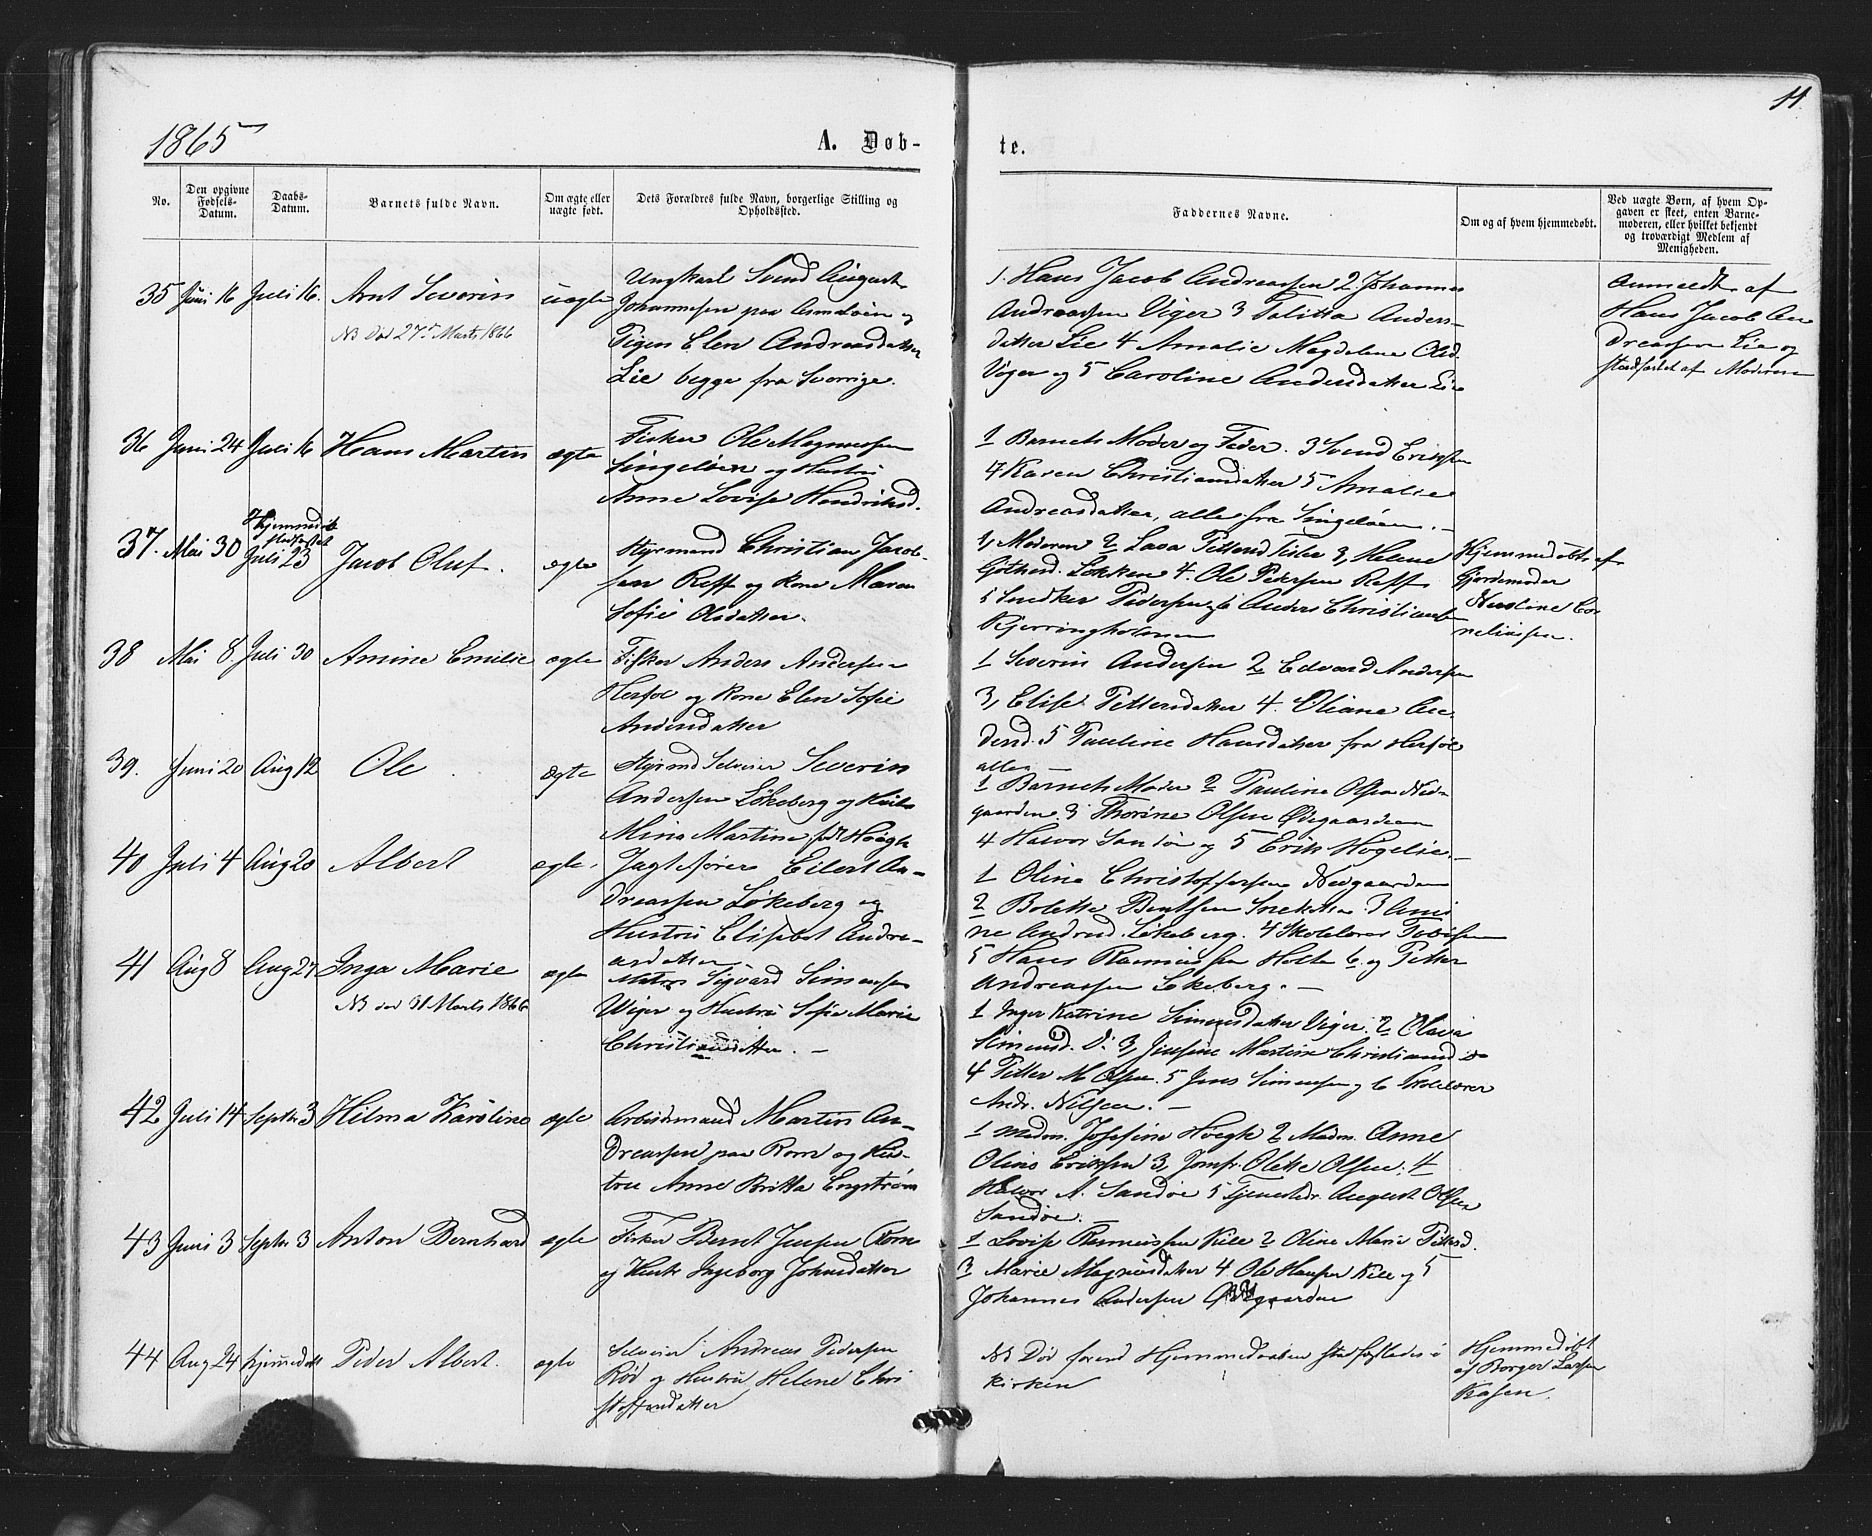 11
1865
A. Døb-
te.
No.
Den opgivne
Fødsels-
Datum.
Daabs-
Datum.
Barnets fulde Navn.
Om ægte eller
uægte født.
Dets Forældres fulde Navn, borgerlige Stilling og
Opholdssted.
Faddernes Navne.
Om og af hvem hjemmedøbt.
Ved uægte Børn, af hvem Op-
gaven er skeet, enten Barne-
moderen, eller hvilket bekjendt
og troværdigt Medlem af
Menigheden.
35 Juni 16 Juli 16. Arnt Severin uægte
NB Død 27de Marts 1866
Ungkarl Svend August
Johannesen paa Asmaløen og
Pigen Elen Andreasdatter
Lie begge fra Sverrige.
1. Hans Jacob Andreassen 2 Johannes
Andreassen Viger 3 Talitta Anders-
datter Lie 4 Amalie Magdelene Olsd.
Viger og 5 Caroline Andersdatter Lie
Anmeldt af
Hans Jacob An
dreassen Lie og
stadfæstet af Moderen
36 Juni 24 Juli 16 Hans Martin ægte
Fisker Ole Magnussen
Singeløen og Hustru
Anne Lovise Hendriksd.
1 Barnets Moder og Fader. 3 Svend Eriksen
4 Karen Christiansdatter 5 Amalie
Andreasdatter, alle fra Singeløen.
37. Mai 30 Hjemmedøbt
stadfæstet
Juli 23 Jacob Oluf. ægte
Styrmand Christian Jacob-
sen Reff og Kone Maren
Sofie Olsdatter.
1, Moderen 2 Lava Pettersd 3, Helene
Løkken 4. Ole Pedersen Reff
5 Snedker Pedersen 6 Anders Christiansen
Kjerringholmen
Hjemmedøbt af
Gjordemoder
Cor
neliussen.
38 Mai 8. Juli 30 Amine Emilie ægte
Fisker Anders Andersen
Herføl og Kone Elen Sofie
Andersdatter
1 Severin Andersen 2 Edvard Andersen
3, Elise Pettersdatter 4. Oliane An
dersd. 5 Pauline Hansdatter fra Herføl
alle
39. Juni 20 Aug 12 Ole ægte
Styrmd Selveier Severin
Andersen Løkeberg og Hustru
Mina Martine født Høegh
1 Barnets Moder 2 Pauline Olsen Ned-
gaarden 3 Thorine Olsen Ødegaarden
4 Halvor Sandø og 5 Erik Høgelie.
40 Juli 4 Aug 20 Albert ægte.
Jagtefører Eilert An-
dreassen Løkeberg og
Hustru Elisabet Andre-
asdatter
1 Oline Christoffersen Nedgaarden
2 Bolette Bentsen 3 Ami
ne Andrsd. Løkeberg. 4 Skolelærer Tobisen
5 Hans Rasmussen Holte 6. og Petter
Andreassen Løkeberg.
41 Aug 8 Aug 27 Inga Marie ægte
NB død 31 Marts 1866
Matros Sigvard Simensen
Wiger og Hustru Sofie Marie
Christiansdatter.
1 Inger Katrine Simensdatter Viger. 2 Olava
Simensd. 3, Josefine Martine Christiansd
4 Petter M Olsen. 5 Jens Simensen og 6 Skolelærer
Andr. Nilsen.
42 Juli 14 Septbr 3 Hilma Karoline ægte
Arbeidsmand Martin An-
dreassen paa Rom og Hus-
tru Anne Britta Engstrøm
1 Madm. Josefine Høegh 2 Madm. Anne
Olivia Eriksen 3, Jomfr. Olette Olsen. 4
Halvor A. Sandøe 5 Tjenestedr. August Olsen
Sandøe.
43 Juni 3 Septbr 3 Anton Bernhard ægte
Fisker Bernt Jensen Rom
og Hustr Ingeborg Johnsdatter
1 Lovise Rasmussen Kile 2 Oline Marie Pettersd.
3 Marie Magnusdatter 4 Ole Hansen Kile og 5
Johannes Andersen Ødegaarden
44 Aug 24 Hjemmedøbt Peder Albert. ægte
Selveier Andreas Pedersen
Rød og Hustru Helene Chri
stoffersdatter
NB Død forend Hjemmedaaben stadfæstedes i
Kirken
Hjemmedøbt
af Borger Larsen
Kasen.